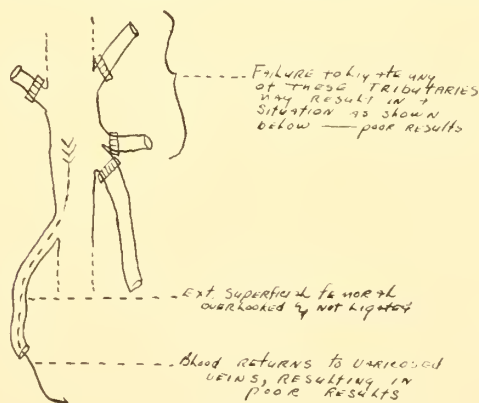 FAILURE TO LIGATE ANY
OF THESE TRIBUTARIES
MAY RESULT IN
SITUATION AS SHOWN
BELOW — POOR RESULTS
EXT. SUPERFICIAL FEMORAL
OVERLOOKED & NOT LIGATED
BLOOD RETURNS TO VARICOSED
VEINS, RESULTING IN
POOR RESULTS